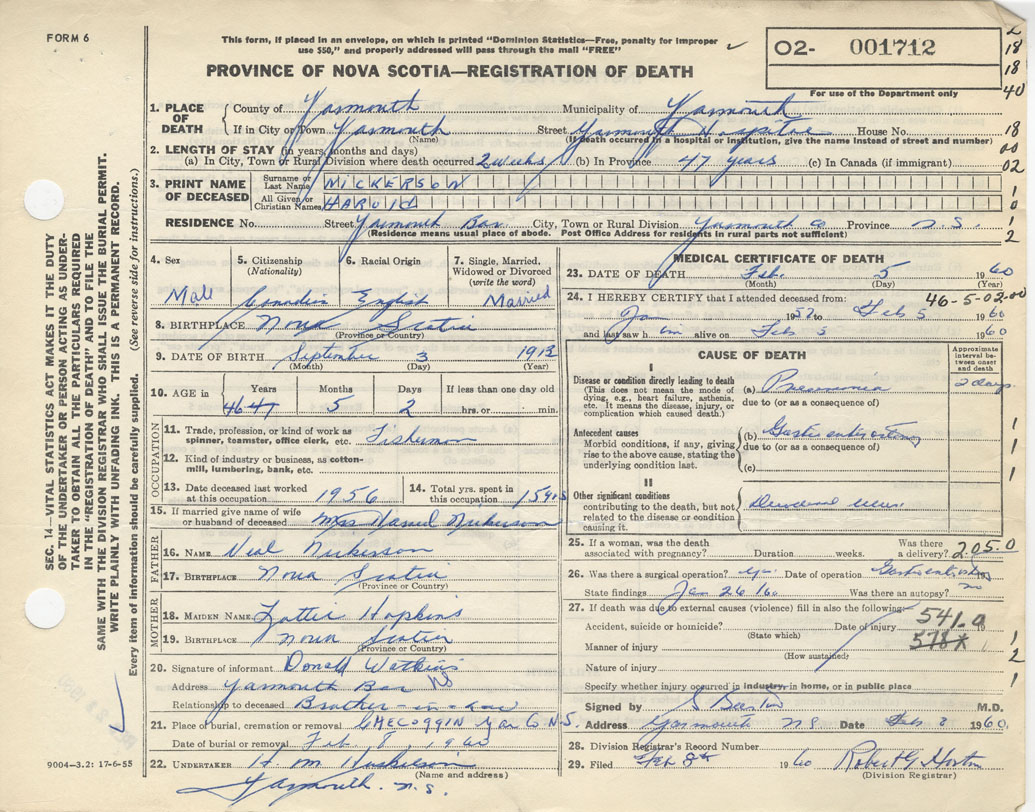 FORM 6
This form, if placed in an envelope, on which is printed "Dominion Statistics—Free, penalty for improper
use $50," and properly addressed will pass through the mail "FREE"
02- 001712
For use of the Department only
PROVINCE OF NOVA SCOTIA—REGISTRATION OF DEATH
2
18
18
40
18
00
02
1
0
1
2
SEC. 14—VITAL STATISTICS ACT MAKES IT THE DUTY
OF THE UNDERTAKER OR PERSON ACTING AS UNDER-
TAKER TO OBTAIN ALL THE PARTICULARS REQUIRED
IN THE "REGISTRATION OF DEATH" AND TO FILE THE
SAME WITH THE DIVISION REGISTRAR WHO SHALL ISSUE THE BURIAL PERMIT.
WRITE PLAINLY WITH UNFADING INK. THIS IS A PERMANENT RECORD.
Every item of information should be carefully supplied. (See reverse side for instructions.)
1. PLACE OF DEATH
County of Yarmouth Municipality of Yarmouth
If in City or Town Yarmouth Street Yarmouth Hospital House No.
(Name) (If death occurred in a hospital or institution, give the name instead of street and number)
2. LENGTH OF STAY (in years, months and days)
(a) In City, Town or Rural Division where death occurred 2 weeks (b) In Province 47 years (c) In Canada (if immigrant)
3. PRINT NAME OF DECEASED
Surname or Last Name NICKERSON
All Given or Christian Names HAROLD
RESIDENCE No. Street Yarmouth Bar City, Town or Rural Division Yarmouth Co Province N.S.
(Residence means usual place of abode. Post Office Address for residents in rural parts not sufficient)
4. Sex
Male
5. Citizenship (Nationality)
Canadian
6. Racial Origin
English
7. Single, Married, Widowed or Divorced (write the word)
Married
8. BIRTHPLACE Nova Scotia
(Province or Country)
9. DATE OF BIRTH September 3 1912
(Month) (Day) (Year)
10. AGE in Years Months Days If less than one day old
46 47 5 2 hrs. or min.
OCCUPATION
11. Trade, profession, or kind of work as
spinner, teamster, office clerk, etc. Fisherman
12. Kind of industry or business, as cotton-
mill, lumbering, bank, etc.
13. Date deceased last worked
at this occupation 1956
14. Total yrs. spent in
this occupation 15
15. If married give name of wife
or husband of deceased Nickerson
FATHER
16. NAME Neal Nickerson
17. BIRTHPLACE Nova Scotia
(Province or Country)
MOTHER
18. MAIDEN NAME Lottie Hopkins
19. BIRTHPLACE Nova Scotia
(Province or Country)
20. Signature of informant Donald Watkins
Address Yarmouth Bar NS
Relationship to deceased Brother-in-law
21. Place of burial, cremation or removal CHECOGGIN Yar Co N.S.
Date of burial or removal Feb 8, 1960
22. UNDERTAKER H M Huskilson
(Name and address)
Yarmouth. N.S.
9004-3.2: 17-6-55
MEDICAL CERTIFICATE OF DEATH
23. DATE OF DEATH Feb. 5 1960
(Month) (Day) (Year)
24. I HEREBY CERTIFY that I attended deceased from: 46-5-02-00
Jan 1957 to Feb 5 1960
and last saw h im alive on Feb 5 1960
CAUSE OF DEATH
Approximate interval between onset and death
I
Disease or condition directly leading to death
(This does not mean the mode of
dying, e.g., heart failure, asthenia,
etc. It means the disease, injury, or
complication which caused death.)
(a) Pneumonia 2 days
due to (or as a consequence of)
Antecedent causes
Morbid conditions, if any, giving
rise to the above cause, stating the
underlying condition last.
(b)
due to (or as a consequence of)
(c)
II
Other significant conditions
contributing to the death, but not
related to the disease or condition
causing it.
Duodenal ulcer
1
1
1
1
25. If a woman, was the death
associated with pregnancy? Duration weeks. Was there a delivery? 205.0
26. Was there a surgical operation? Date of operation
State findings Jan 26/60 Was there an autopsy? no
27. If death was due to external causes (violence) fill in also the following:
Accident, suicide or homicide? Date of injury 19
(State which)
541.0
578x
Manner of injury
(How sustained)
Nature of injury
1
2
1
Specify whether injury occurred in industry, in home, or in public place
Signed by S Burton M.D.
Address Yarmouth NS Date Feb 1960
28. Division Registrar's Record Number
29. Filed Feb 8th 1960 Robert G. Horton
(Division Registrar)